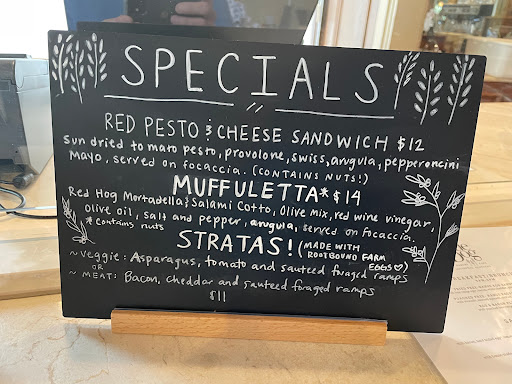 SPECIALS
RED PESTO & CHEESE SANDWICH $12
Sun dried tomato pesto, provolone, swiss, arugula, pepperoncini
Mayo, served on focaccia. (CONTAINS NUTS!)
MUFFULETTA* $14
Red Hog Mortadella & Salami Cotto, olive mix, red wine vinegar,
olive oil, salt and pepper, arugula, served on focaccia.
* contains nuts
STRATAS! (MADE WITH
ROOTBOUND FARM
EGGS ♡)
~ Veggie: Asparagus, tomato and sauteed foraged ramps
OR
~ MEAT: Bacon, cheddar and sauteed foraged ramps
$11